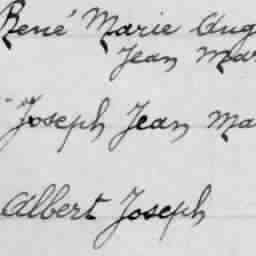 René Marie Aug
Jean Mar
Joseph Jean Ma
Albert Joseph